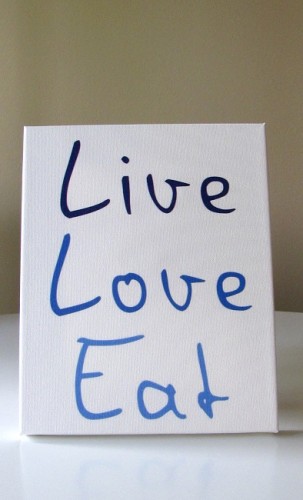 Live
Love
Eat